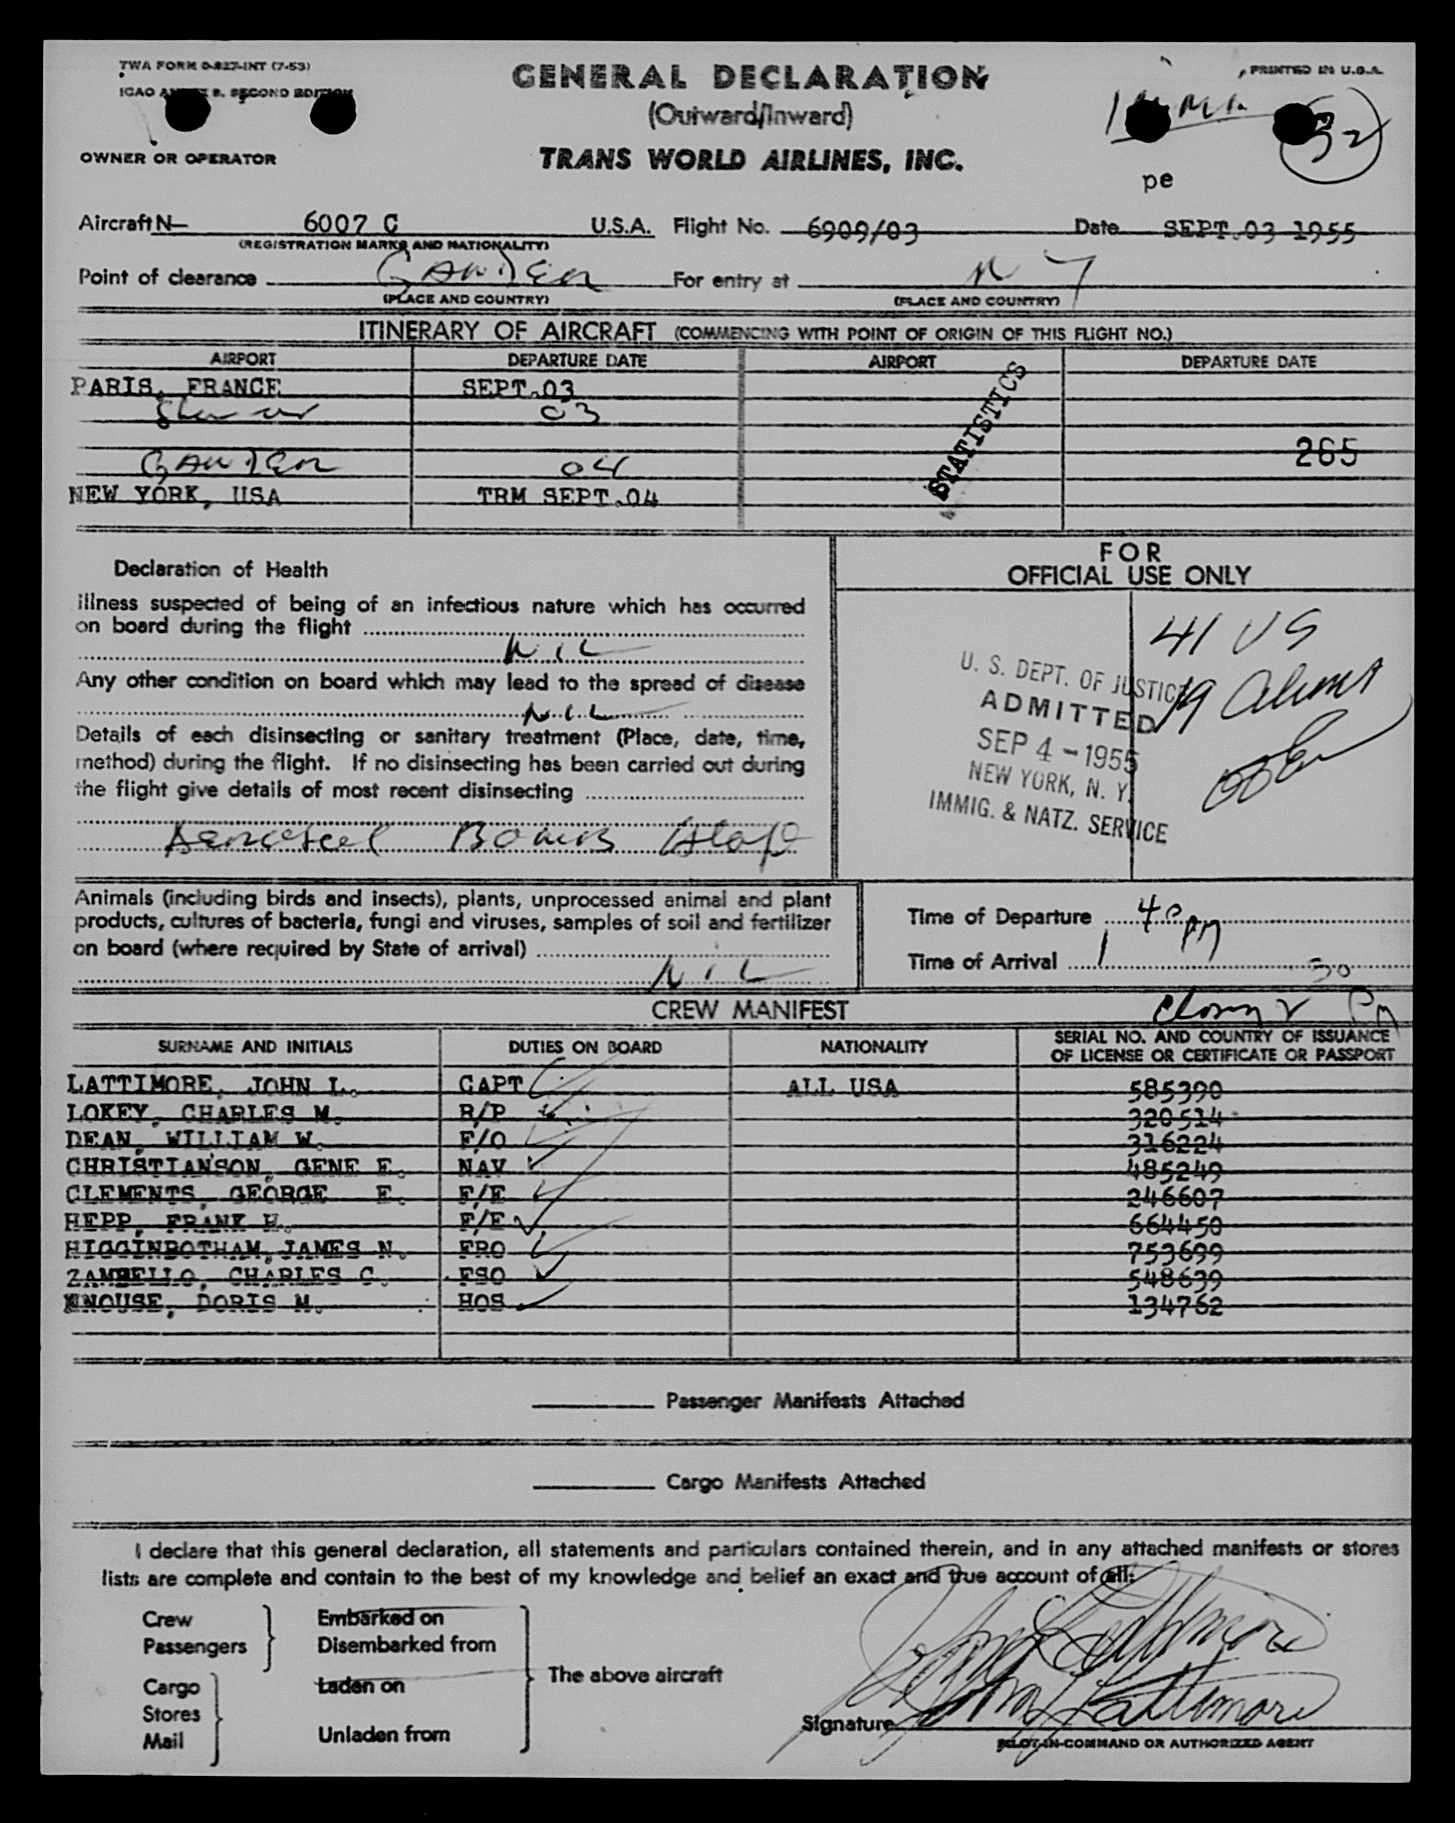 TWA FORM O-827-INT (7-53)
PRINTED IN U.S.A.
GENERAL DECLARATION
ICAO ANNEX 9. SECOND EDITION
(Outward/Inward)
32
OWNER OR OPERATOR
TRANS WORLD AIRLINES, INC.
pe
Aircraft N— 6007 C U.S.A. Flight No. 6909/03 Date SEPT.03 1955
(REGISTRATION MARKS AND NATIONALITY)
Point of clearance GANDER For entry at N Y
(PLACE AND COUNTRY) (PLACE AND COUNTRY)
ITINERARY OF AIRCRAFT (COMMENCING WITH POINT OF ORIGIN OF THIS FLIGHT NO.)
AIRPORT DEPARTURE DATE AIRPORT DEPARTURE DATE
PARIS, FRANCE SEPT.03
03
STATISTICS
265
GANDER 04
NEW YORK, USA TRM SEPT.04
Declaration of Health
Illness suspected of being of an infectious nature which has occurred
on board during the flight
NIL
Any other condition on board which may lead to the spread of disease
NIL
Details of each disinsecting or sanitary treatment (Place, date, time,
method) during the flight. If no disinsecting has been carried out during
the flight give details of most recent disinsecting
Aerosol Bombs
FOR
OFFICIAL USE ONLY
41 US
19 Aliens
U. S. DEPT. OF JUSTICE
ADMITTED
SEP 4 - 1955
NEW YORK, N. Y.
IMMIG. & NATZ. SERVICE
Animals (including birds and insects), plants, unprocessed animal and plant
products, cultures of bacteria, fungi and viruses, samples of soil and fertilizer
on board (where required by State of arrival)
NIL
Time of Departure
Time of Arrival
CREW MANIFEST
SURNAME AND INITIALS DUTIES ON BOARD NATIONALITY SERIAL NO. AND COUNTRY OF ISSUANCE
OF LICENSE OR CERTIFICATE OR PASSPORT
LATTIMORE, JOHN L. CAPT ALL USA 585390
LOKEY, CHARLES M. R/P 320514
DEAN, WILLIAM W. F/O 316224
CHRISTIANSON, GENE E. NAV 485249
CLEMENTS, GEORGE E. F/E 246607
HEPP, FRANK H. F/E 664450
HIGGINBOTHAM, JAMES N. FRO 753699
ZAMBELLO, CHARLES C. FSO 548639
KNOUSE, DORIS M. HOS 134762
Passenger Manifests Attached
Cargo Manifests Attached
I declare that this general declaration, all statements and particulars contained therein, and in any attached manifests or stores
lists are complete and contain to the best of my knowledge and belief an exact and true account of all:
Crew Embarked on
Passengers Disembarked from
The above aircraft
Cargo Laden on
Stores
Mail Unladen from
John L Lattimore
John L Lattimore
Signature
PILOT-IN-COMMAND OR AUTHORIZED AGENT